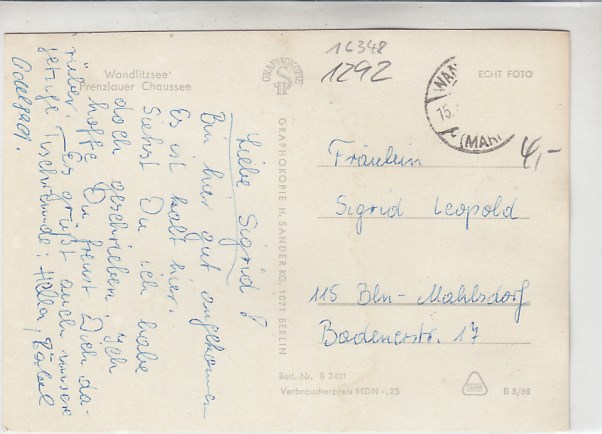 Wandlitzsee
Prenzlauer Chaussee
GRAPHOKOPIE
16348
1292
ECHT FOTO
15.
(MARK
4,-
Liebe Sigrid!
Bin hier gut angekommen
Es ist kalt hier.
Siehst Du ich habe
doch geschrieben. Ich
hoffe Du freust Dich da-
rüber. Es grüßt auch unsere
jetzige Tischrunde: Hella,
GRAPHOKOPIE H. SANDER KG, 1071 BERLIN
Fräulein
Sigrid Leopold
115 Bln-Mahlsdorf
Badenerstr. 17
Best.-Nr. R 2421
Verbraucherpreis MDN -,25
B 5/66